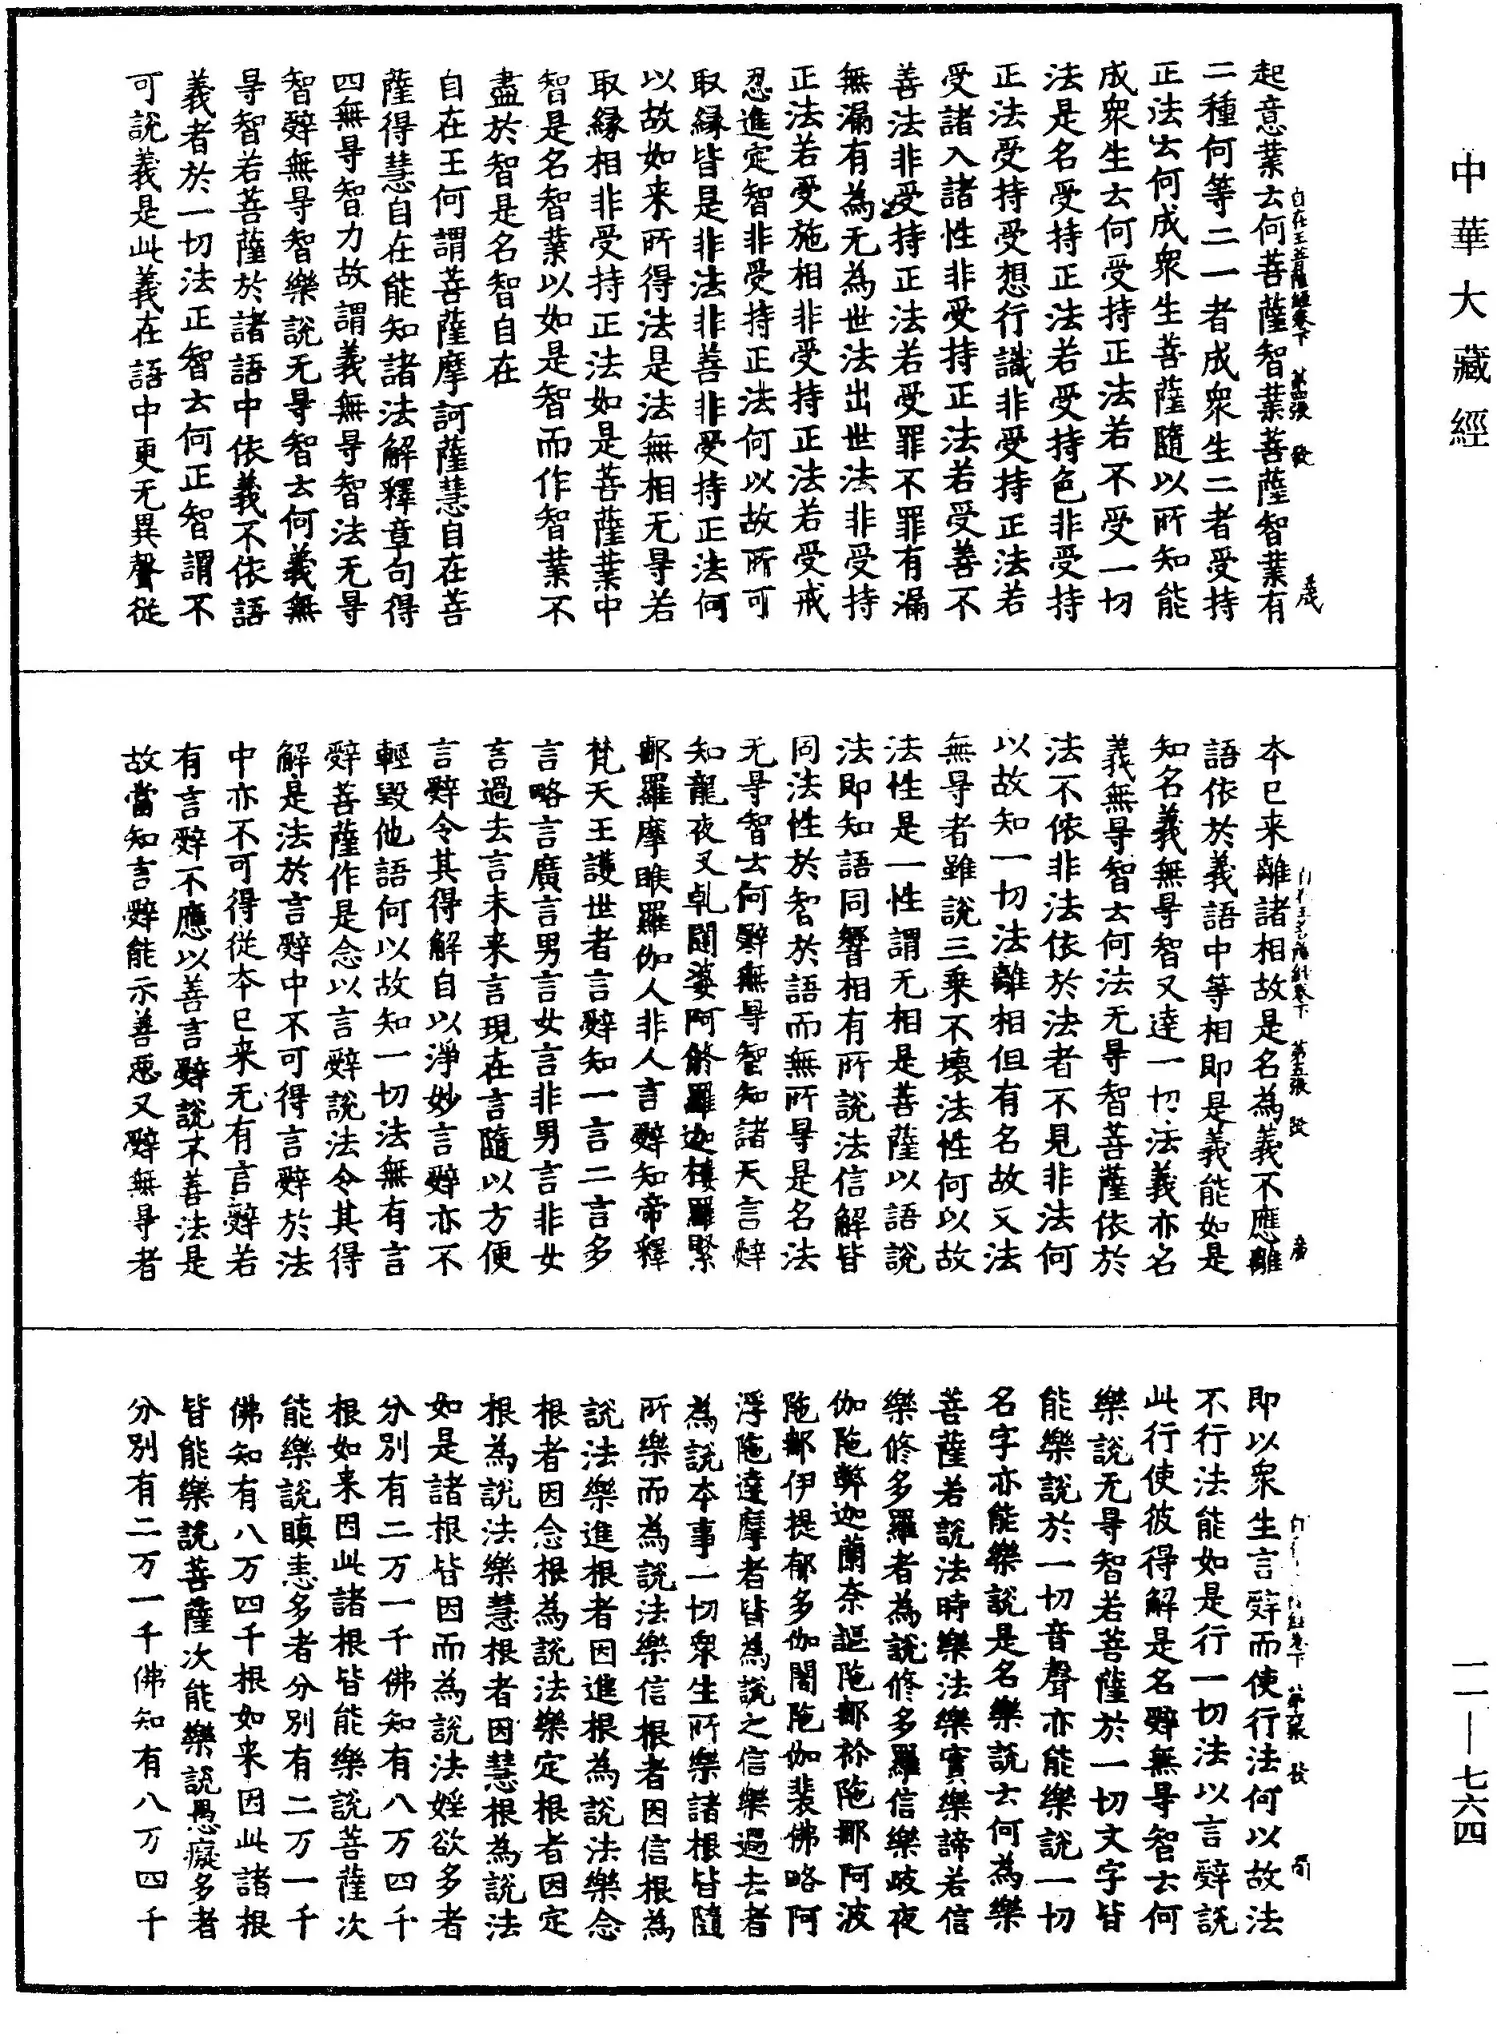 中華大藏經
起意業云何菩薩智業菩薩智業有
二種何等二一者成衆生二者受持
正法云何成衆生菩薩隨以所知能
成衆生云何受持正法若不受一切
法是名受持正法若受持色非受持
正法受持受想行識非受持正法若
受諸入諸性非受持正法若受善不
善法非受持正法若受罪不罪有漏
無漏有為无為世法出世法非受持
正法若受施相非受持正法若受戒
忍進定智非受持正法何以故所可
取緣皆是非法非善非受持正法何
以故如来所得法是法無相无㝵若
取緣相非受持正法如是菩薩業中
智是名智業以如是智而作智業不
盡於智是名智自在
自在王何謂菩薩摩訶薩慧自在菩
薩得慧自在能知諸法解釋章句得
四無㝵智力故謂義無㝵智法无㝵
智辤無㝵智樂說无㝵智云何義無
㝵智若菩薩於諸語中依義不依語
義者於一切法正智云何正智謂不
可說義是此義在語中更无異聲從
自在王菩薩經卷下 第四張 𢽾
本已来離諸相故是名為義不應離
語依於義語中等相即是義能如是
知名義無㝵智又達一切法義亦名
義無㝵智云何法无㝵智菩薩依於
法不依非法依於法者不見非法何
以故知一切法離相但有名故又法
無㝵者雖說三乗不壊法性何以故
法性是一性謂无相是菩薩以語說
法即知語同響相有所說法信解皆
同法性於智於語而無所㝵是名法
无㝵智云何辤無㝵智知諸天言辤
知龍夜叉乹闥婆阿修羅迦樓羅緊
那羅摩睺羅伽人非人言辤知帝釋
梵天王護世者言辤知一言二言多
言略言廣言男言女言非男言非女
言過去言未来言現在言隨以方便
言辤令其得解自以淨妙言辤亦不
輕毀他語何以故知一切法無有言
辤菩薩作是念以言辤說法令其得
解是法於言辤中不可得言辤於法
中亦不可得從本已来无有言辤若
有言辤不應以善言辤說不善法是
故當知言辤能示善惡又辤無㝵者
第五張
即以衆生言辤而使行法何以故法
不行法能如是行一切法以言辤說
此行使彼得解是名辤無㝵智云何
樂說无㝵智若菩薩於一切文字皆
能樂說於一切音聲亦能樂說一切
名字亦能樂說是名樂說云何為樂
菩薩若說法時樂法樂實樂諦若信
樂修多羅者為說修多羅信樂歧夜
伽陁弊迦蘭奈謳陁那袮陁那阿波
陁那伊提郁多伽闍陁伽裴佛略阿
浮陁達摩者皆為說之信樂過去者
為說本事一切衆生所樂諸根皆隨
所樂而為說法樂信根者因信根為
說法樂進根者因進根為說法樂念
根者因念根為說法樂定根者因定
根為說法樂慧根者因慧根為說法
如是諸根皆因而為說法婬欲多者
分別有二万一千佛知有八万四千
根如来因此諸根皆能樂說菩薩次
能樂說瞋恚多者分別有二万一千
佛知有八万四千根如来因此諸根
皆能樂說菩薩次能樂說愚癡多者
分別有二万一千佛知有八万四千
一一—七六四